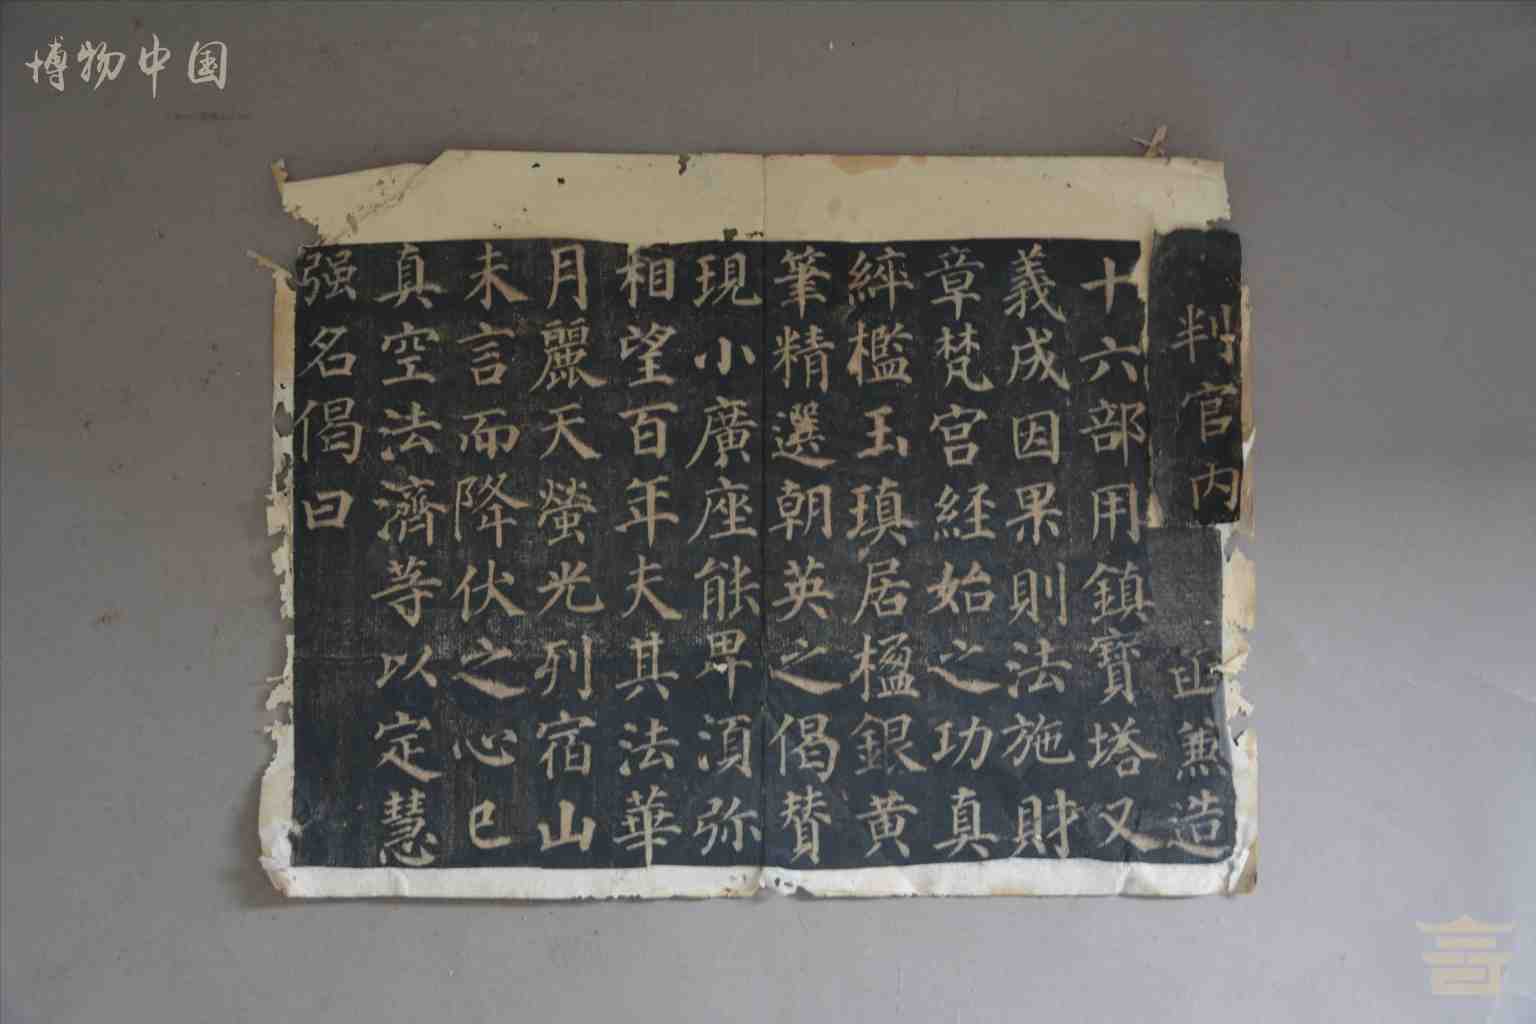 博物中国
判官内
正兼造
十六部用鎮寶塔又
義成因果則法施財
章梵宫経始之功真
縡檻玉瑱居楹銀黄
筆精選朝英之偈賛
現小廣座能卑湏弥
相望百年夫其法華
月麗天螢光列宿山
未言而降伏之心已
真空法濟等以定慧
强名偈曰